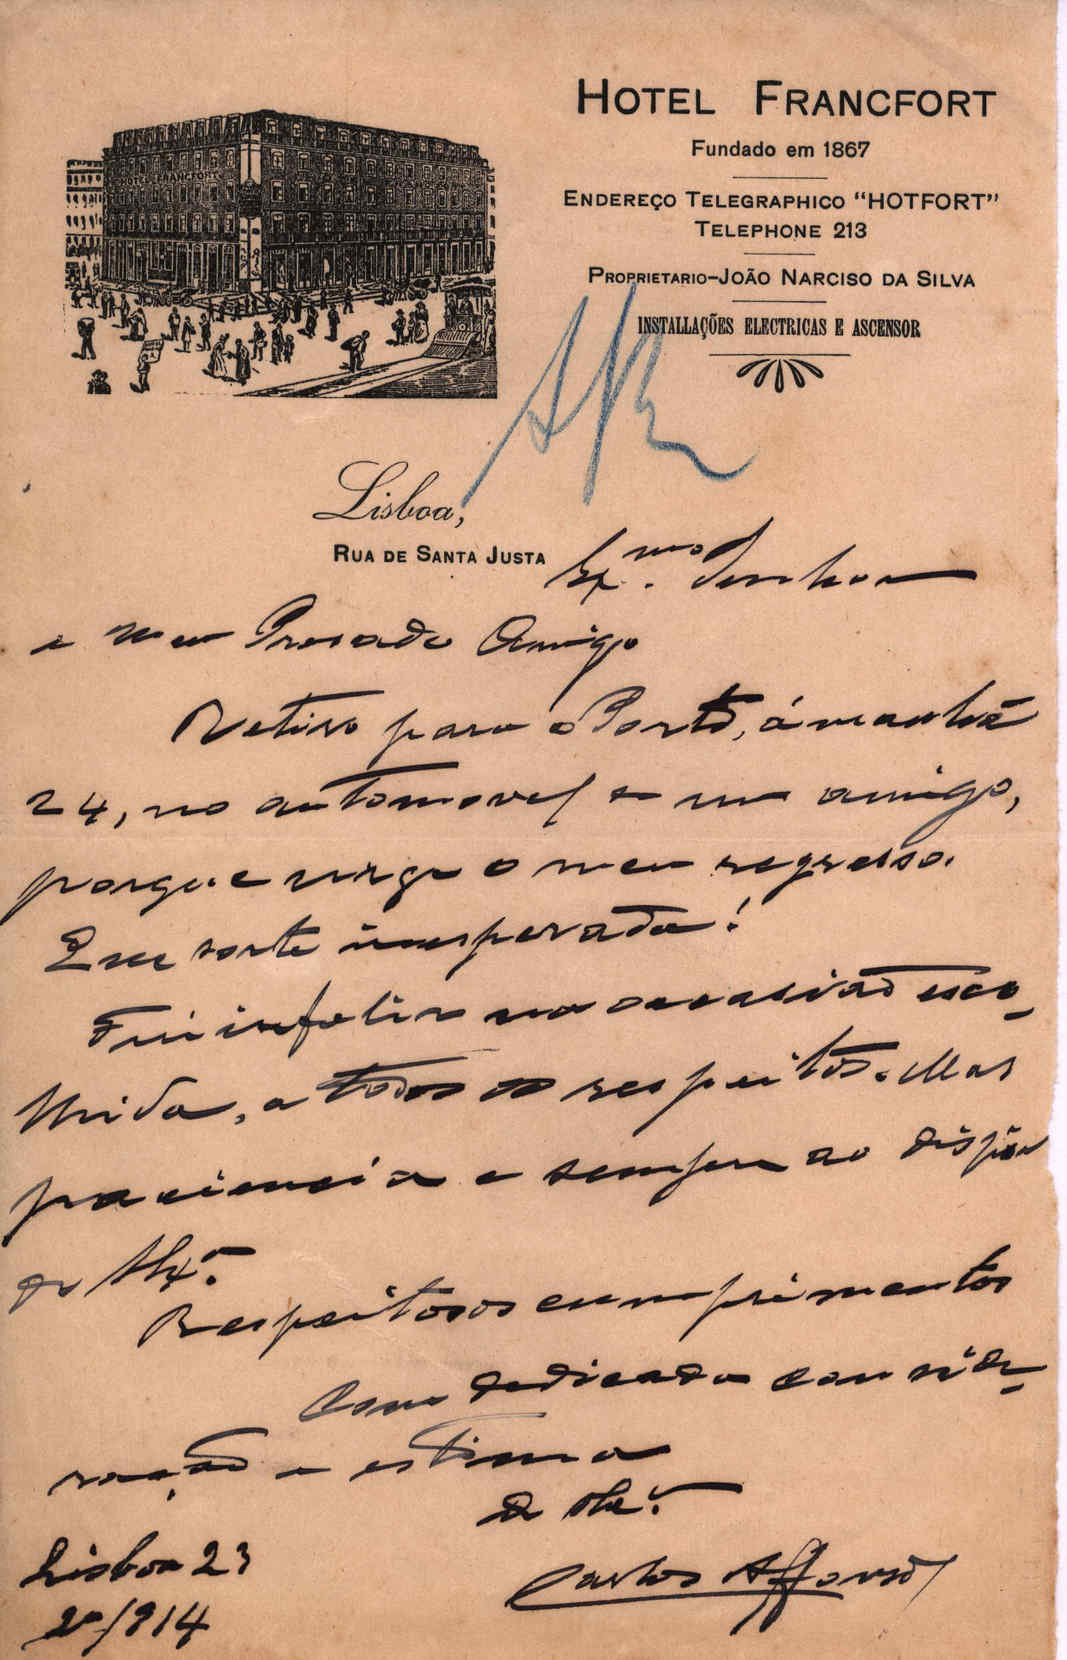 HOTEL FRANCFORT
HOTEL FRANCFORT
Fundado em 1867
ENDEREÇO TELEGRAPHICO "HOTFORT"
TELEPHONE 213
PROPRIETARIO-JOÃO NARCISO DA SILVA
INSTALLAÇÕES ELECTRICAS E ASCENSOR
Lisboa,
RUA DE SANTA JUSTA
Exmo. Senhor
e meu Presado Amigo
Retiro para o Porto, ámanhã
24, no automovel de um amigo,
porque urge o meu regresso.
Essa sorte inesperada!
Fui infeliz na occasião esco-
lhida, a todos os respeitos. Mas
paciencia e sempre ao dispôr
de
Respeitosos cumprimentos
Com dedicada conside-
ração e estima
de
Carlos Affonso
Lisboa 23
/914